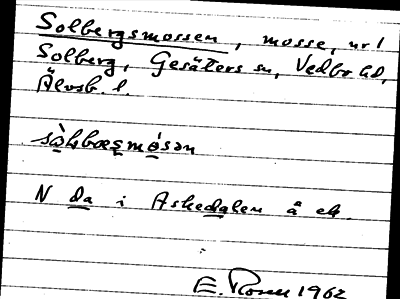 Solbergsmossen, mosse, nr 1
Solberg, Gesäters sn, Vedbo hd,
Älvsb. l.
N da i Askedalen å ek.
E. Rosen 1962